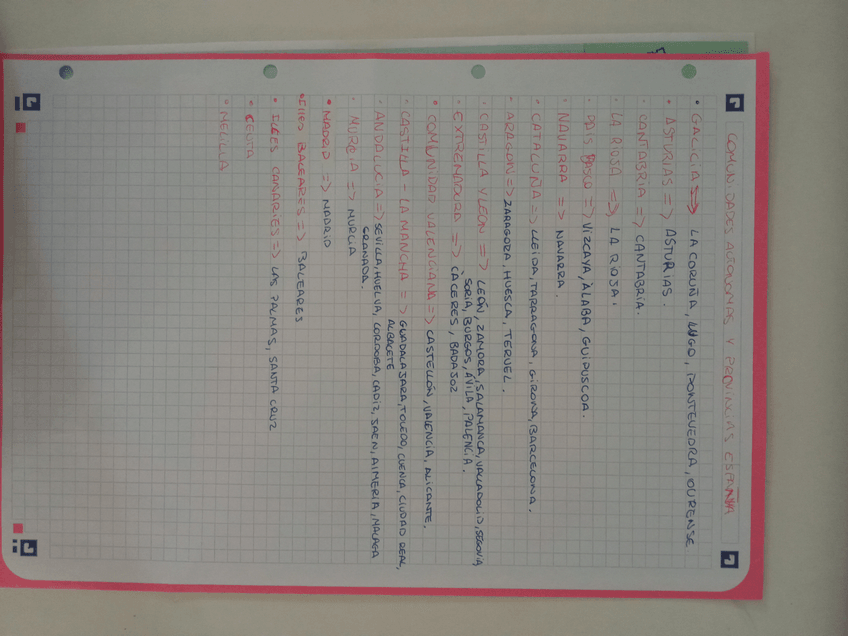 COMUNIDADES AUTÓNOMAS Y PROVINCIAS ESPAÑA
• GALICIA => LA CORUÑA, LUGO, PONTEVEDRA, OURENSE
• ASTURIAS => ASTURIAS.
• CANTABRIA => CANTABRIA.
• LA RIOJA => LA RIOJA.
• PAIS BASCO => VIZCAYA, ÀLABA, GUIPUSCOA.
• NAVARRA => NAVARRA.
• CATALUÑA => LLEIDA, TARRAGONA, GIRONA, BARCELONA.
• ARAGON => ZARAGORA, HUESCA, TERUEL.
• CASTILLA Y LEON => LEÓN, ZAMORA, SALAMANCA, VALLADOLID, SEGOVIA,
SORIA, BURGOS, ÁVILA, PALENCIA.
• EXTREMADURA => CÁCERES, BADAJOZ
• COMUNIDAD VALENCIANA => CASTELLÓN, VALENCIA, ALICANTE.
• CASTILLA - LA MANCHA => GUADALAJARA, TOLEDO, CUENCA, CIUDAD REAL,
ALBACETE
• ANDALUCIA => SEVILLA, HUELVA, CORDOBA, CADIZ, JAEN, ALMERIA, MALAGA
GRANADA.
• MURCIA => MURCIA
• MADRID => MADRID
• ILLES BALEARES => BALEARES
• ILLES CANARIES => LAS PALMAS, SANTA CRUZ
• CEUTA
• MELILLA